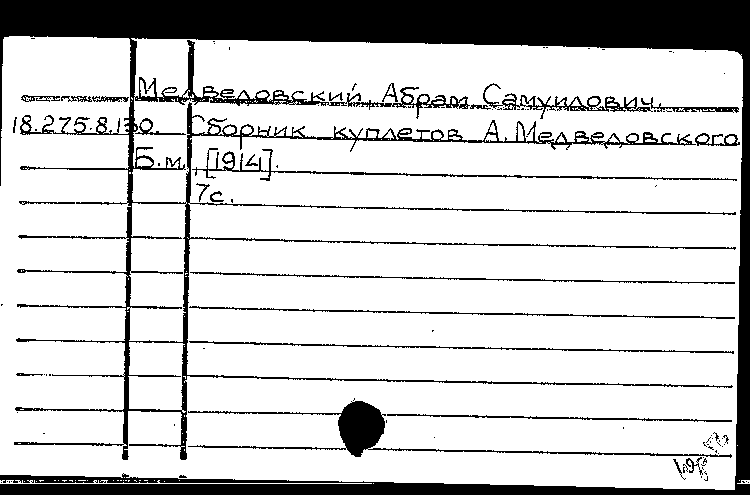 Медведовский, Абрам Самуилович.
18.275.8.130. Сборник куплетов А. Медведовского
Б.м., [1914].
7с.